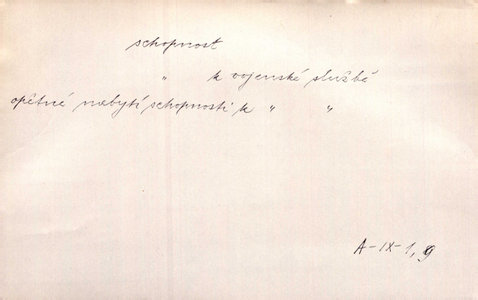 schopnost
" k vojenské službě
opětné nabytí schopnosti k " "
A-IX-1, 9